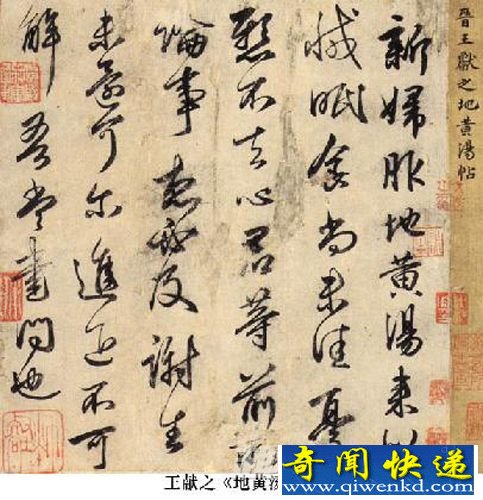 晋王獻之地黄湯帖
新婦服地黄湯來似
減眠食尚未佳憂
懸不去心君等前所
論事想必及謝生
未還可尔進退不可
解吾當書問也
王献之《地黄汤
奇闻快递
www.qiwenkd.com